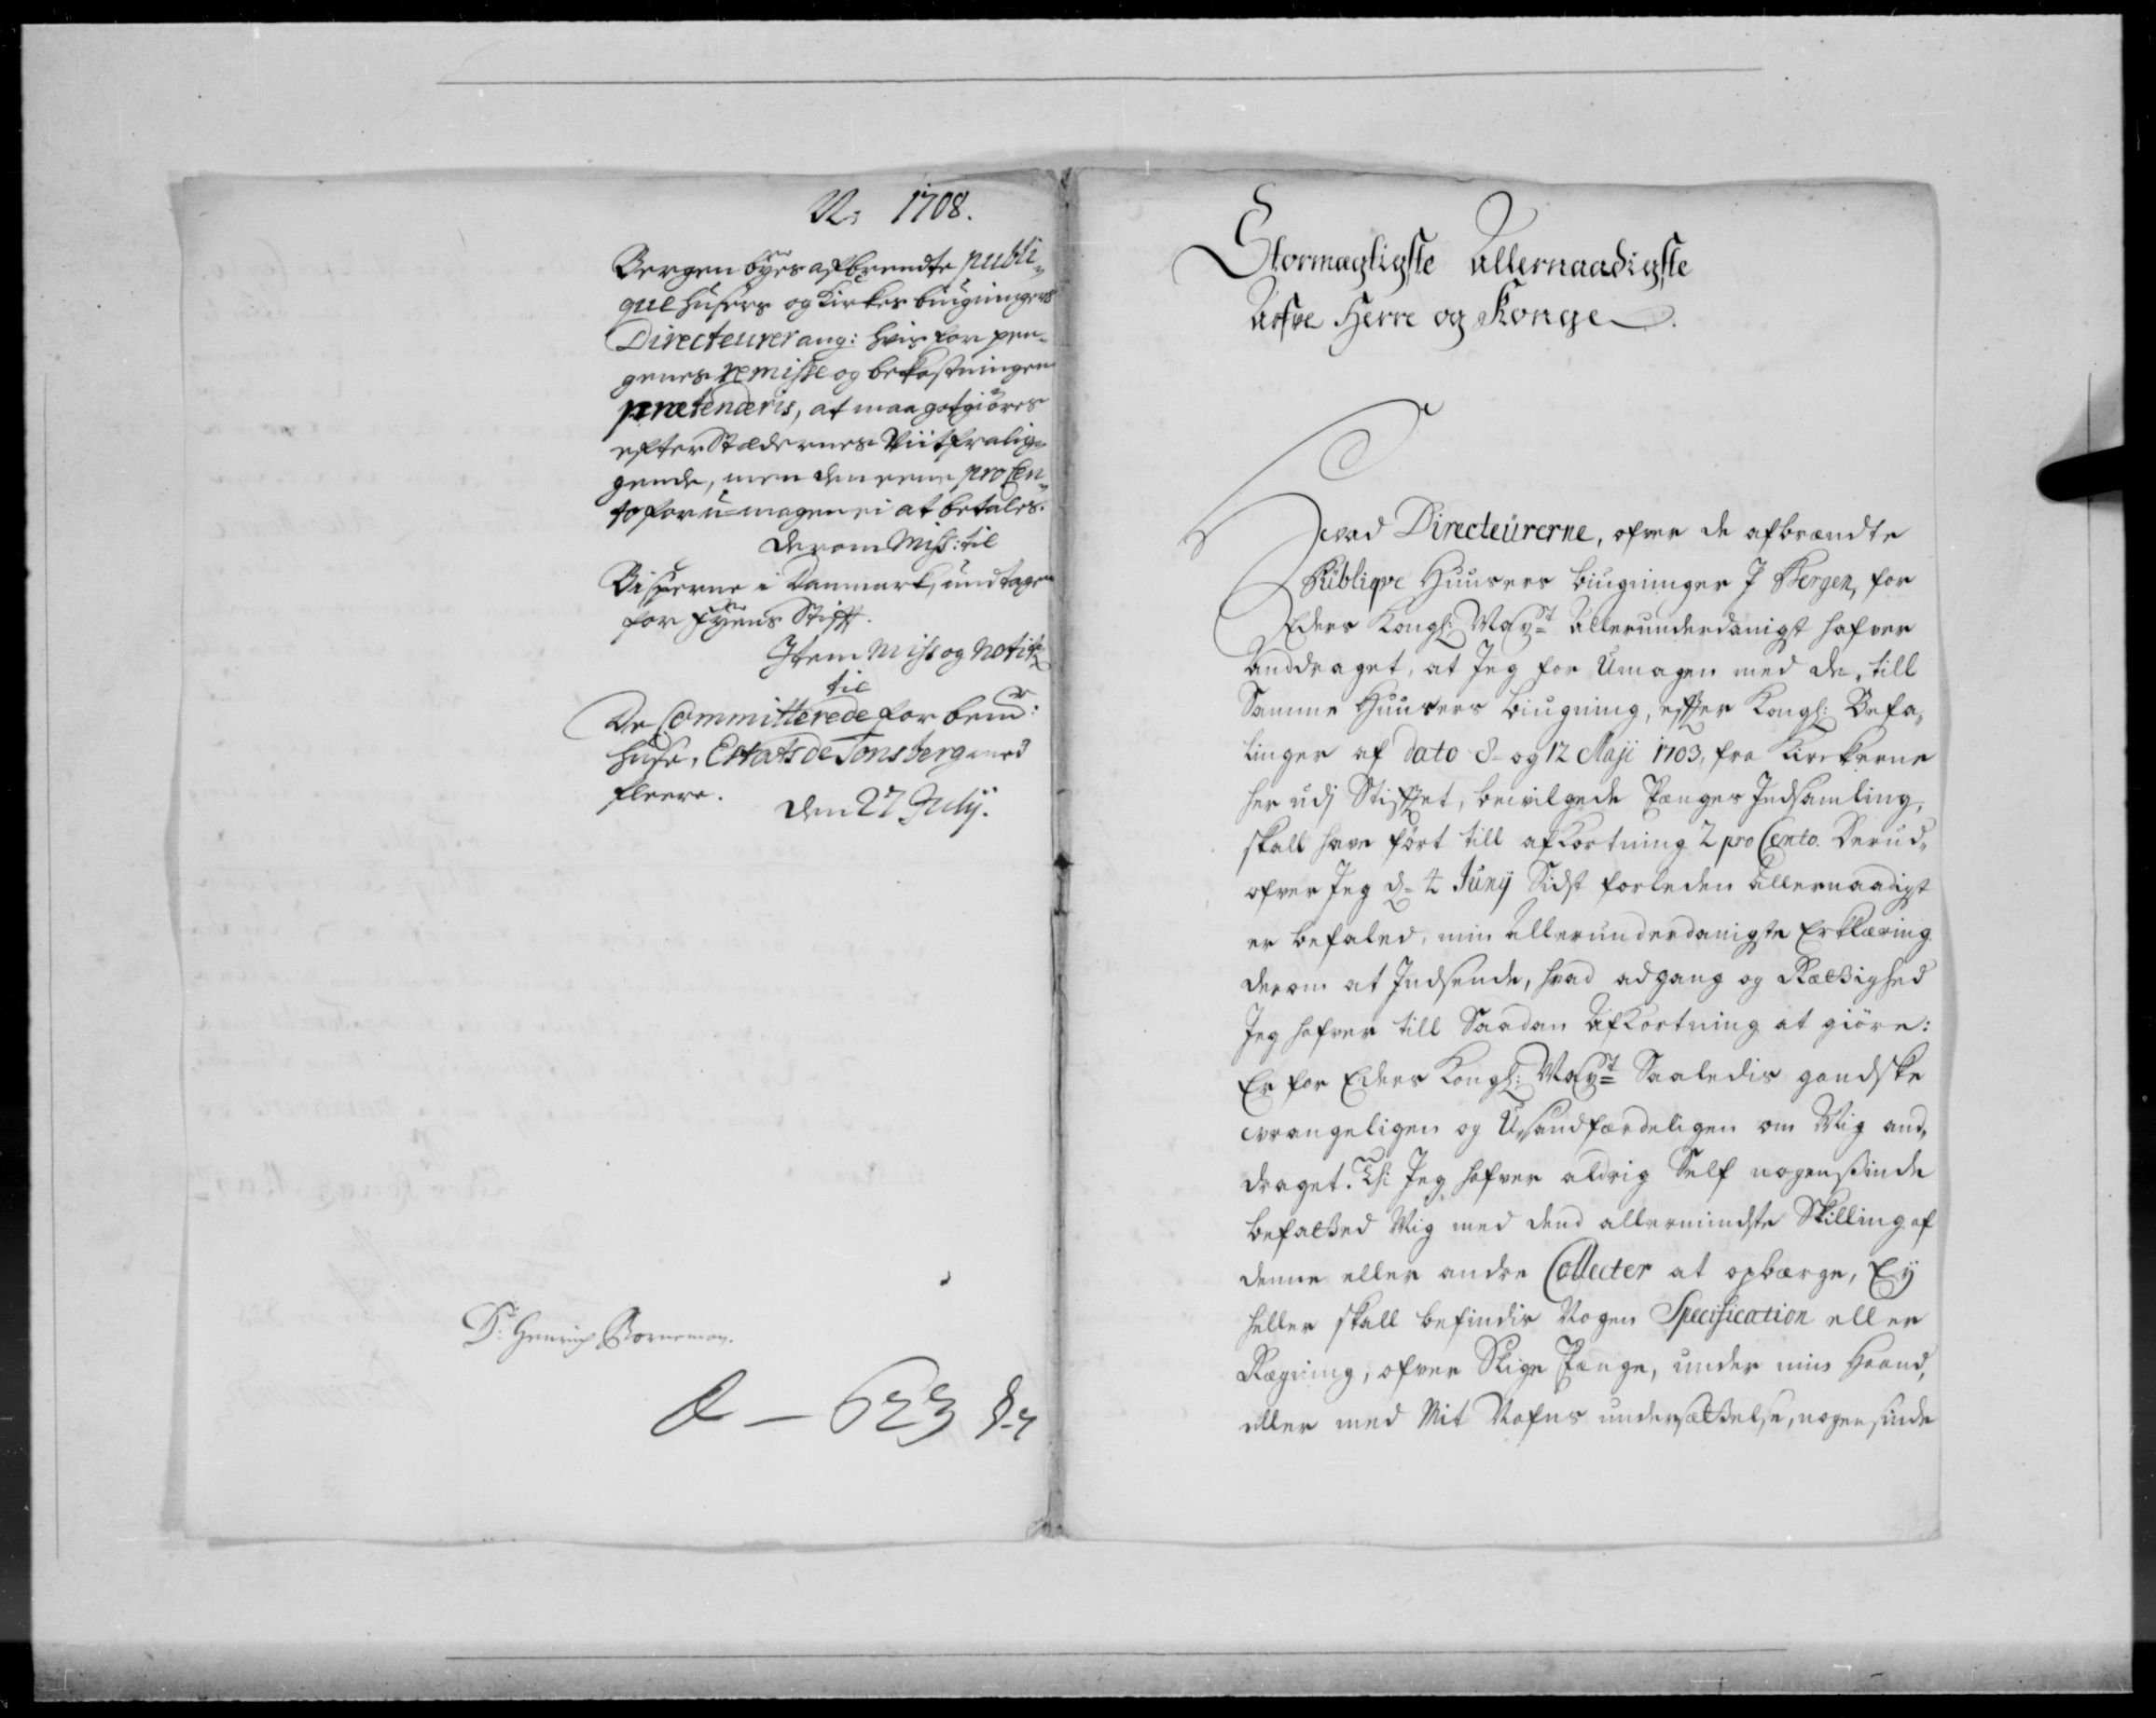 N: 1708.
Bergen byes afbrendte publi¬
que huusers og Kirkers bugningers
Directeurer ang: hvis for pen¬
genes remisse og bekostningen
prætenderis, at maa gotgiöres
efter Stædernes Viitfralig¬
gende, men den eene pro Cen¬
to for u-magen ei at betales.
Derom Miss: til
Bisperne i Danmark, undtagen
for Fyens Stifft.
Item Miss og Notits
til
De Committerede for bem:te
huse, Etats de Tonsberg med
fleere.
den 27 July.
Dr: Henrich Bornemann.
- 623
Stormægtigste Allernaadigste
Arfve Herre og Konge.
Hvad Directeürerne, ofver de afbrændte
Püblique Huusers biugninger J Bergen, for
Eders Kongl: Mayt Allerunderdanigst hafver
Anddraget, at Jeg for Umagen med de, till
Samme Huusers biugning, effter Kongl: Befa¬
linger af dato 8 og 12 Maji 1703, fra Kirckerne
her udj Stifftet, bevilgede Penges Indsamling,
skall have fört till afkortning 2 pro Cento. Derud¬
ofver Jeg d. 4 Junij Sidst forleden Allernaadigst
er befaled, min Allerunderdanigste Erklæring
derom at Indsende, hvad adgang og Rættighed
Jeg hafver till Saadan Afkortning at giöre:
Er for Eders Kongl: Mayt Saaledis gandske
wrangeligen og Usandfærdeligen om Mig and¬
draget. Thi Jeg hafver aldrig Self nogensinde
befatted Mig med dend allermindste Skilling af
denne eller andre Collecter at opbærge, Ey
heller skall befindis Nogen Specification eller
Regning, ofver Slige Penge, under min Haand,
eller med Mit Nafns undersættelse, nogensinde